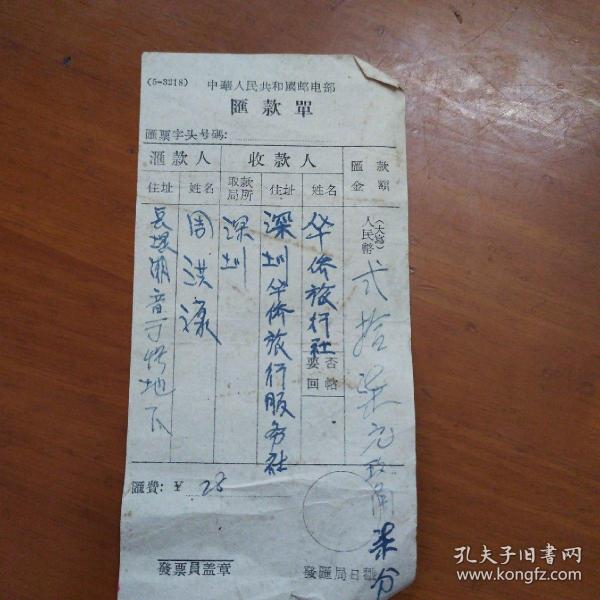 (5-3218)
中華人民共和國邮电部
匯款單
匯票字头号碼:
匯款人
收款人
匯款金額
住址
姓名
取款局所
住址
姓名
(大寫)人民幣
贰拾柒元
角柒分
华侨旅行社
要否回帖
深圳华侨旅行服务社
深圳
周洪
地下
匯費: ¥ 28
發票員盖章
發匯局日
孔夫子旧书网
www.kongfz.com